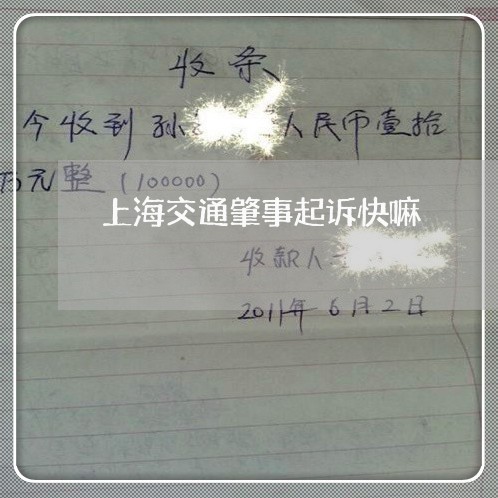 收条
今收到孙 人民币壹拾
万元整(100000)
上海交通肇事起诉快嘛
收款人
2011年6月2日